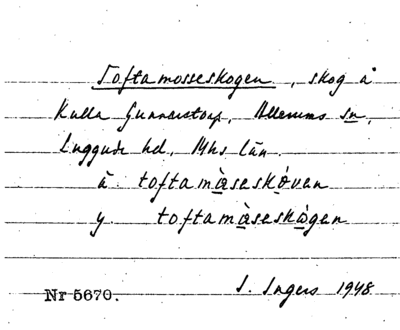 Toftamosseskogen, skog å
Kulla Gunnarstorp, Allerums sn,
Luggude hd, Mhs län.
ä. toftamåsesko̍ven
y. toftamåseskågen
Nr 5670. I. Ingers 1948